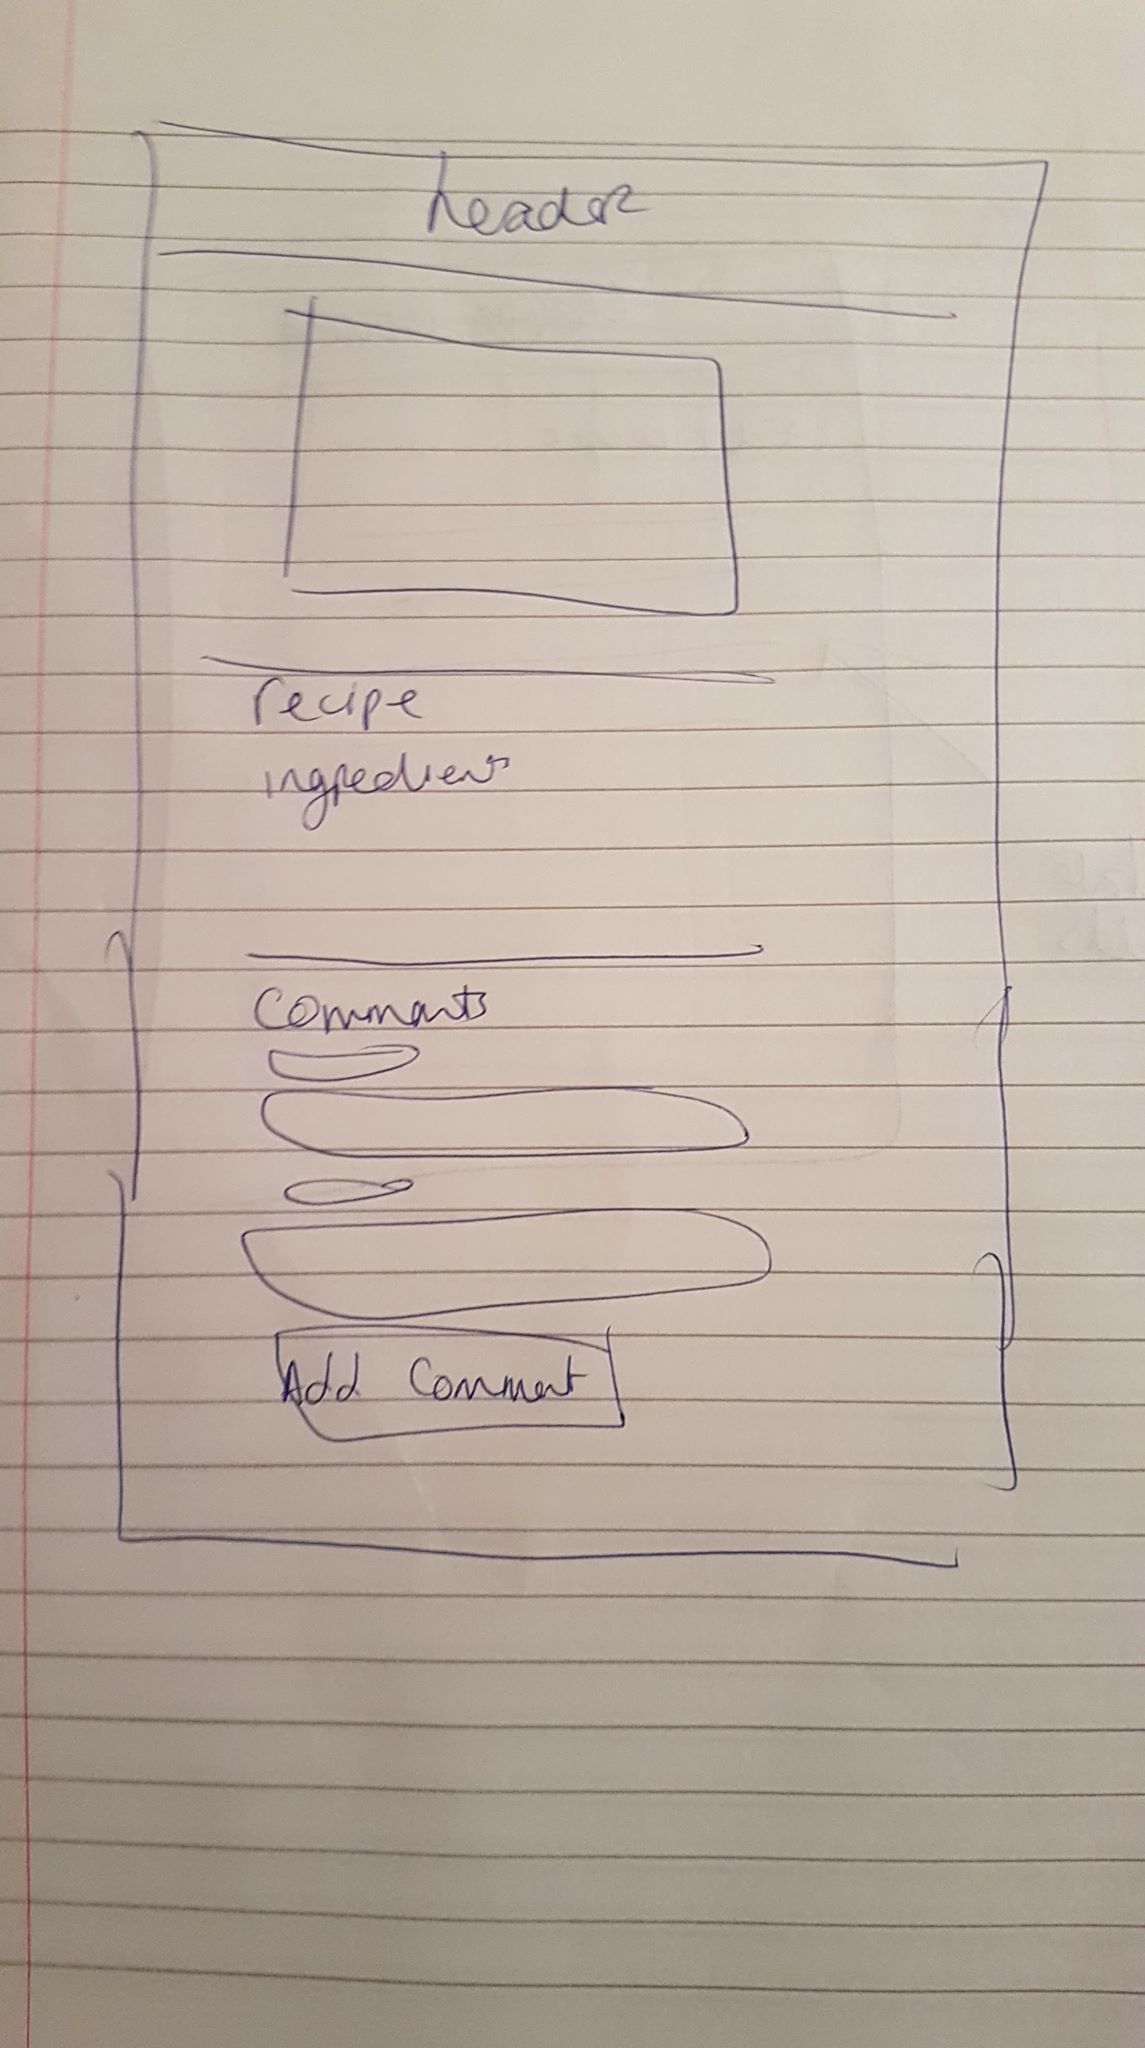 header
recipe
ingredients
Comments
Add Comment